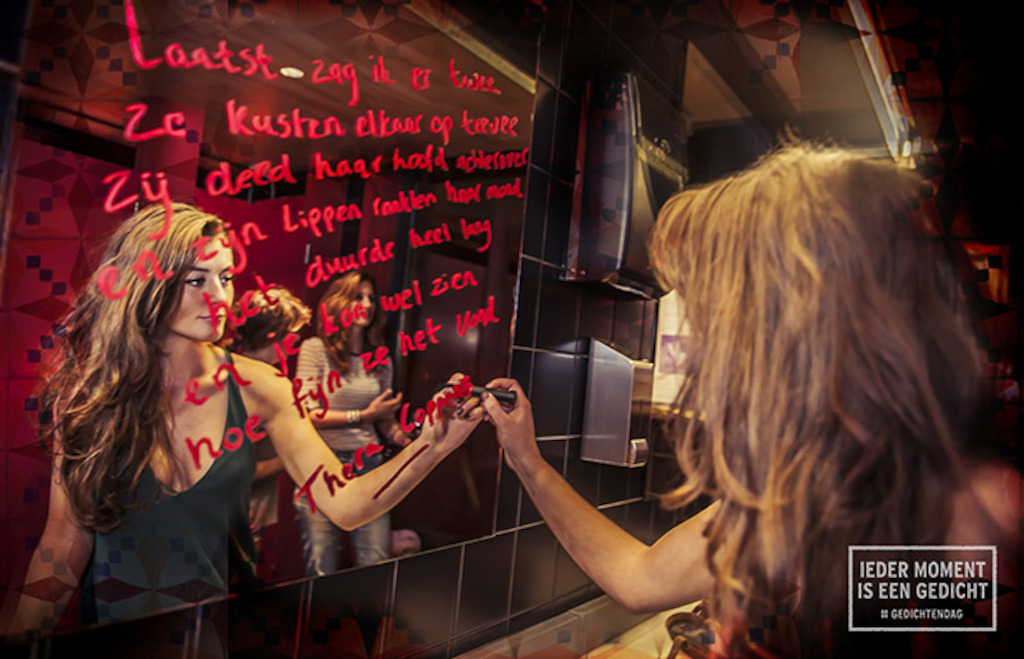 Laatst zag ik er twee
Ze kusten elkaar op teevee
Zij deed haar hoofd achterover
en zijn lippen raakten haar mond
het duurde heel lang
en je kon wel zien
hoe fijn ze het vond
IEDER MOMENT
IS EEN GEDICHT
# GEDICHTENDAG